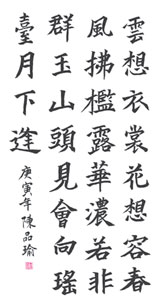 雲想衣裳花想容春
風拂檻露華濃若非
群玉山頭見會向瑤
臺月下逢
庚寅年陳品瑜